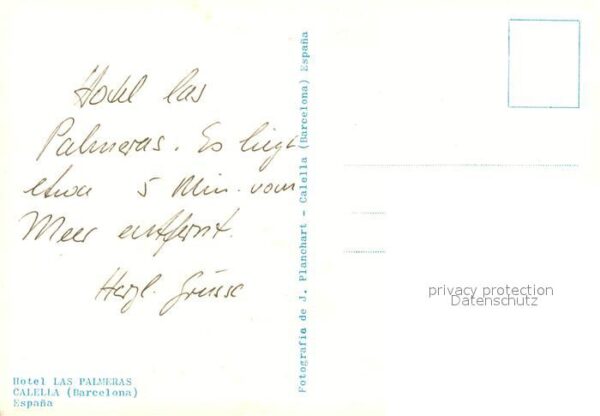 Hotel las
Palmeras. Es liegt
etwa 5 Min. vom
Meer entfernt.
Herzl. Grüsse
Hotel LAS PALMERAS
CALELLA (Barcelona)
España
Fotografia de J. Planchart - Calella (Barcelona) España
privacy protection
Datenschutz